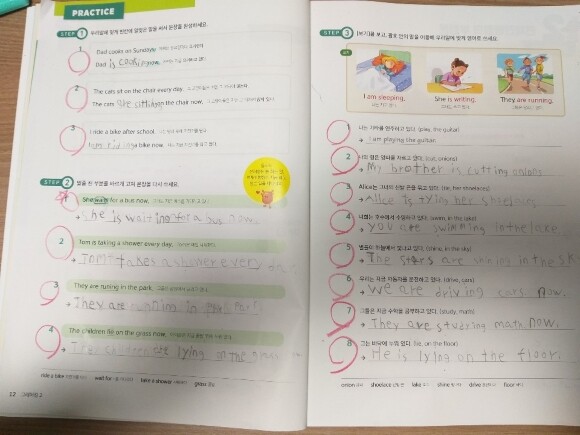 PRACTICE
STEP 1 우리말에 맞게 빈칸에 알맞은 말을 써서 문장을 완성하세요.
1 Dad cooks on Sundays.
Dad is cooking now.
2 The cats sit on the chair every day.
The cats are sitting on the chair now.
3 I ride a bike after school.
a bike now.
STEP 2 밑줄 친 부분을 바르게 고쳐 문장을 다시 쓰세요.
1 She waits for a bus now.
→ She is waiting for a bus now.
2 Tom is taking a shower every day.
→ Tom takes a shower every day
3 They are runing in the park.
→ They are
4 The children lie on the grass now.
→ The children are lying on the grass
ride a bike wait for take a shower grass
12
STEP 3
I am sleeping.
She is writing.
They are running.
1 나는 기타를 연주하고 있다. (play, the guitar)
→ I am playing the guitar
2 (cut, onions)
→ My brother is cutting onions
3 Alice는 그녀의 신발 끈을 묶고 있다. (tie, her shoelaces)
→ Alice is tying her
4 너희는 호수에서 수영하고 있다. (swim, in the lake)
→ you are swimming in the lake.
5 별들이 하늘에서 빛나고 있다. (shine, in the sky)
→ The stars are shining in the sk
6 우리는 지금 자동차를 운전하고 있다. (drive, cars)
→ We are driving cars now.
7 그들은 지금 수학을 공부하고 있다. (study, math)
→ They are studying math now.
8 그는 바닥에 누워 있다. (lie, on the floor)
→ He is lying on the floor.
onion 양파 shoelace lake 호수 shine drive floor